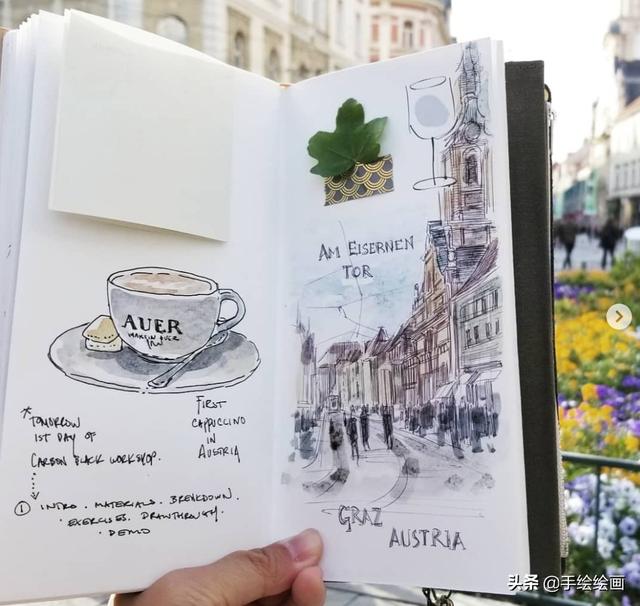 AUER
FIRST
CAPPUCCINO
IN
AUSTRIA
* TOMORROW
1ST DAY OF
CARBON BLACK WORKSHOP.
① INTRO. MATERIALS. BREAKDOWN.
• EXERCISES. DRAWTHROUGH.
• DEMO
AM EISERNEN
TOR
GRAZ
AUSTRIA
头条 @手绘绘画